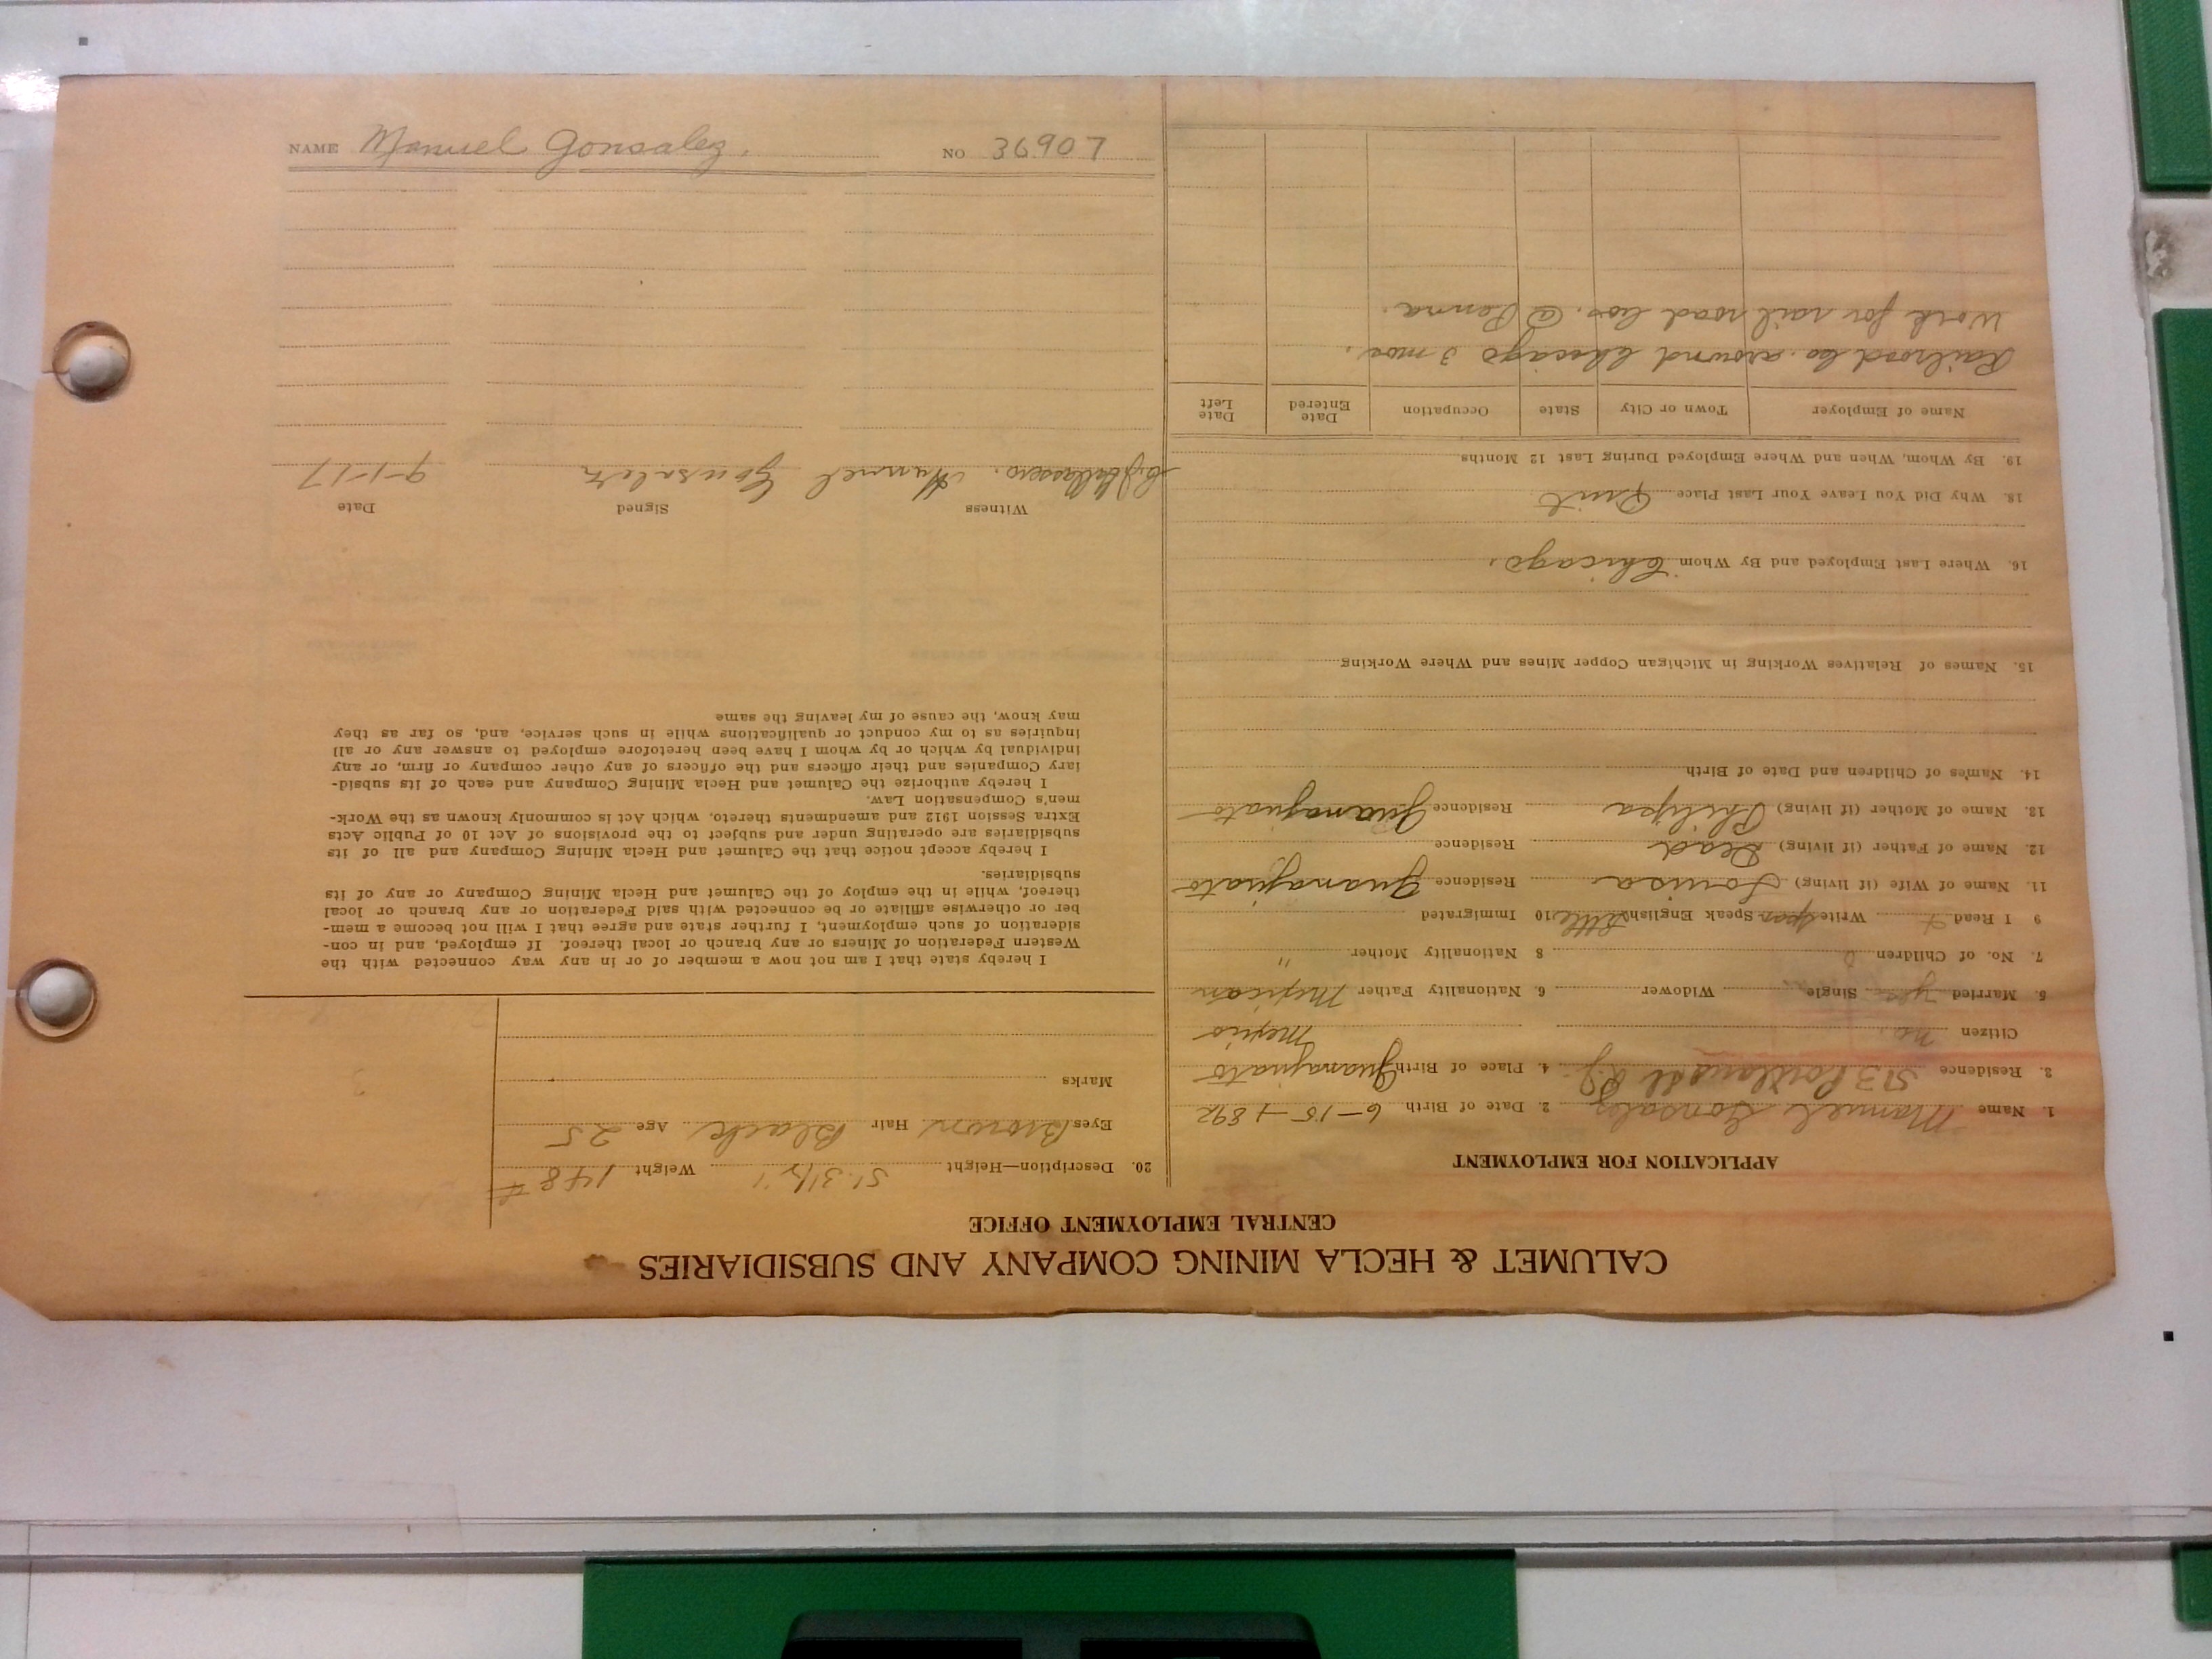 CALUMET & HECLA MINING COMPANY AND SUBSIDIARIES
CENTRAL EMPLOYMENT OFFICE
APPLICATION FOR EMPLOYMENT
1. Name Manuel Gonsalez 2. Date of Birth 6-15-1892
3. Residence 513 Portland St 4. Place of Birth Guanajuato
Citizen no. Mexico
5. Married yes Single Widower 6. Nationality Father Mexican
7. No. of Children 0 8 Nationality Mother "
9 I Read Write Speak English little 10 Immigrated
11. Name of Wife (if living) Louisa Residence Guanajuato
12. Name of Father (if living) Dead Residence
13. Name of Mother (if living) Philipa Residence Guanajuato
14. Names of Children and Date of Birth
15. Names of Relatives Working in Michigan Copper Mines and Where Working
16. Where Last Employed and By Whom Chicago.
18. Why Did You Leave Your Last Place Quit
19. By Whom, When and Where Employed During Last 12 Months
Name of Employer Town or City State Occupation Date Entered Date Left
Railroad Co. around Chicago 3 mos.
Work for rail road Cos. @ Penna.
20. Description—Height 5' 3 1/2" Weight 148 #
Eyes Brown Hair Black Age 25
Marks
I hereby state that I am not now a member of or in any way connected with the
Western Federation of Miners or any branch or local thereof. If employed, and in con-
sideration of such employment, I further state and agree that I will not become a mem-
ber or otherwise affiliate or be connected with said Federation or any branch or local
thereof, while in the employ of the Calumet and Hecla Mining Company or any of its
subsidiaries.
I hereby accept notice that the Calumet and Hecla Mining Company and all of its
subsidiaries are operating under and subject to the provisions of Act 10 of Public Acts
Extra Session 1912 and amendments thereto, which Act is commonly known as the Work-
men's Compensation Law.
I hereby authorize the Calumet and Hecla Mining Company and each of its subsid-
iary Companies and their officers and the officers of any other company or firm, or any
individual by which or by whom I have been heretofore employed to answer any or all
inquiries as to my conduct or qualifications while in such service, and, so far as they
may know, the cause of my leaving the same
Witness Signed Date
Manuel Gonsalez 9-1-17
NAME Manuel Gonsalez. NO 36907